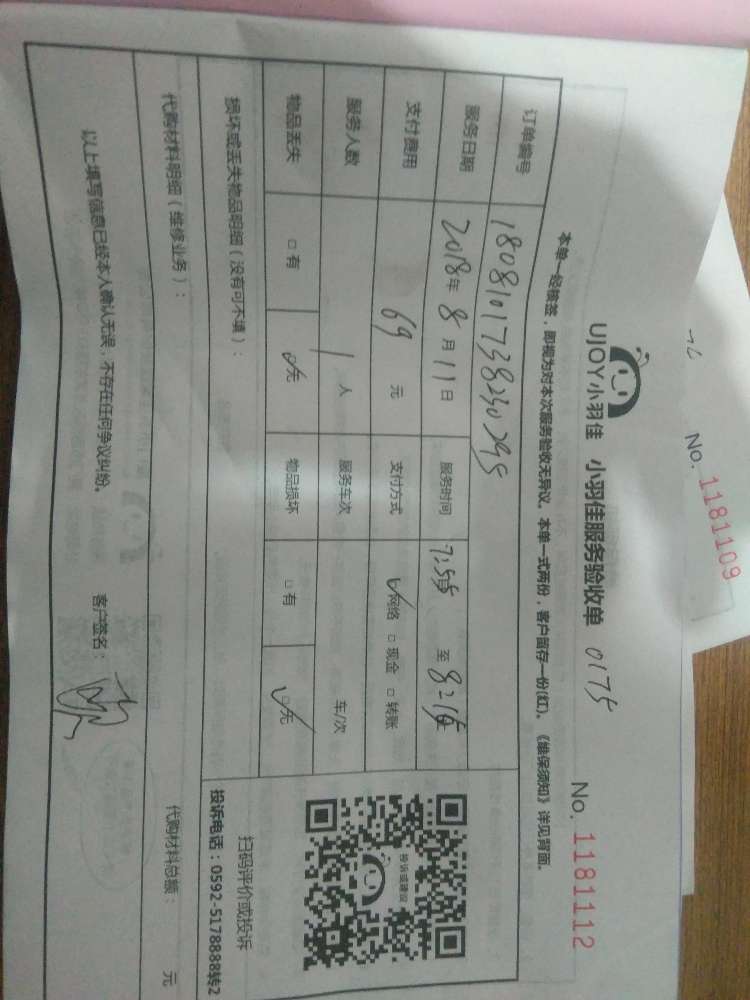 No. 1181109
UJOY小羽佳 小羽佳服务验收单 0175
No. 1181112
本单一经核签，即视为对本次服务验收无异议。本单一式两份，客户留存一份(红)。《维保须知》详见背面。
订单编号 180810173823029S
服务日期 2018年8月11日 服务时间 7:55 至 8:21
支付费用 69 元 支付方式 ☑网络 □现金 □转账
服务人数 1 人 服务车次 车/次
物品丢失 □有 ☑无 物品损坏 □有 ☑无
投诉或建议
扫码评价或投诉
投诉电话：0592-5178888转2
损坏或丢失物品明细（没有可不填）：
代购材料明细（维修业务）： 代购材料总额： 元
以上填写信息已经本人确认无误，不存在任何争议纠纷。 客户签名：